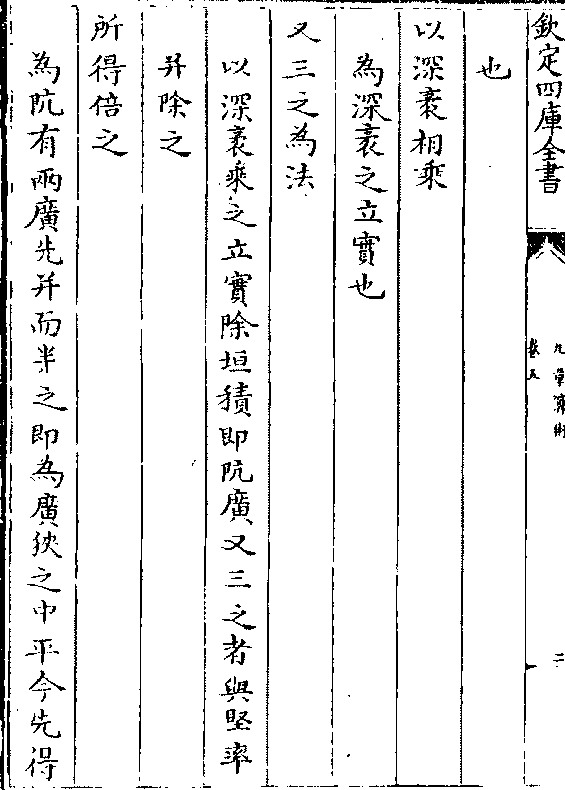 欽定四庫全書
九章算術
卷五
二
也
以深袤相乘
為深袤之立實也
又三之為法
以深袤乘之立實除垣積即阬廣又三之者與堅率
并除之
所得倍之
為阬有兩廣先并而半之即為廣狹之中平今先得